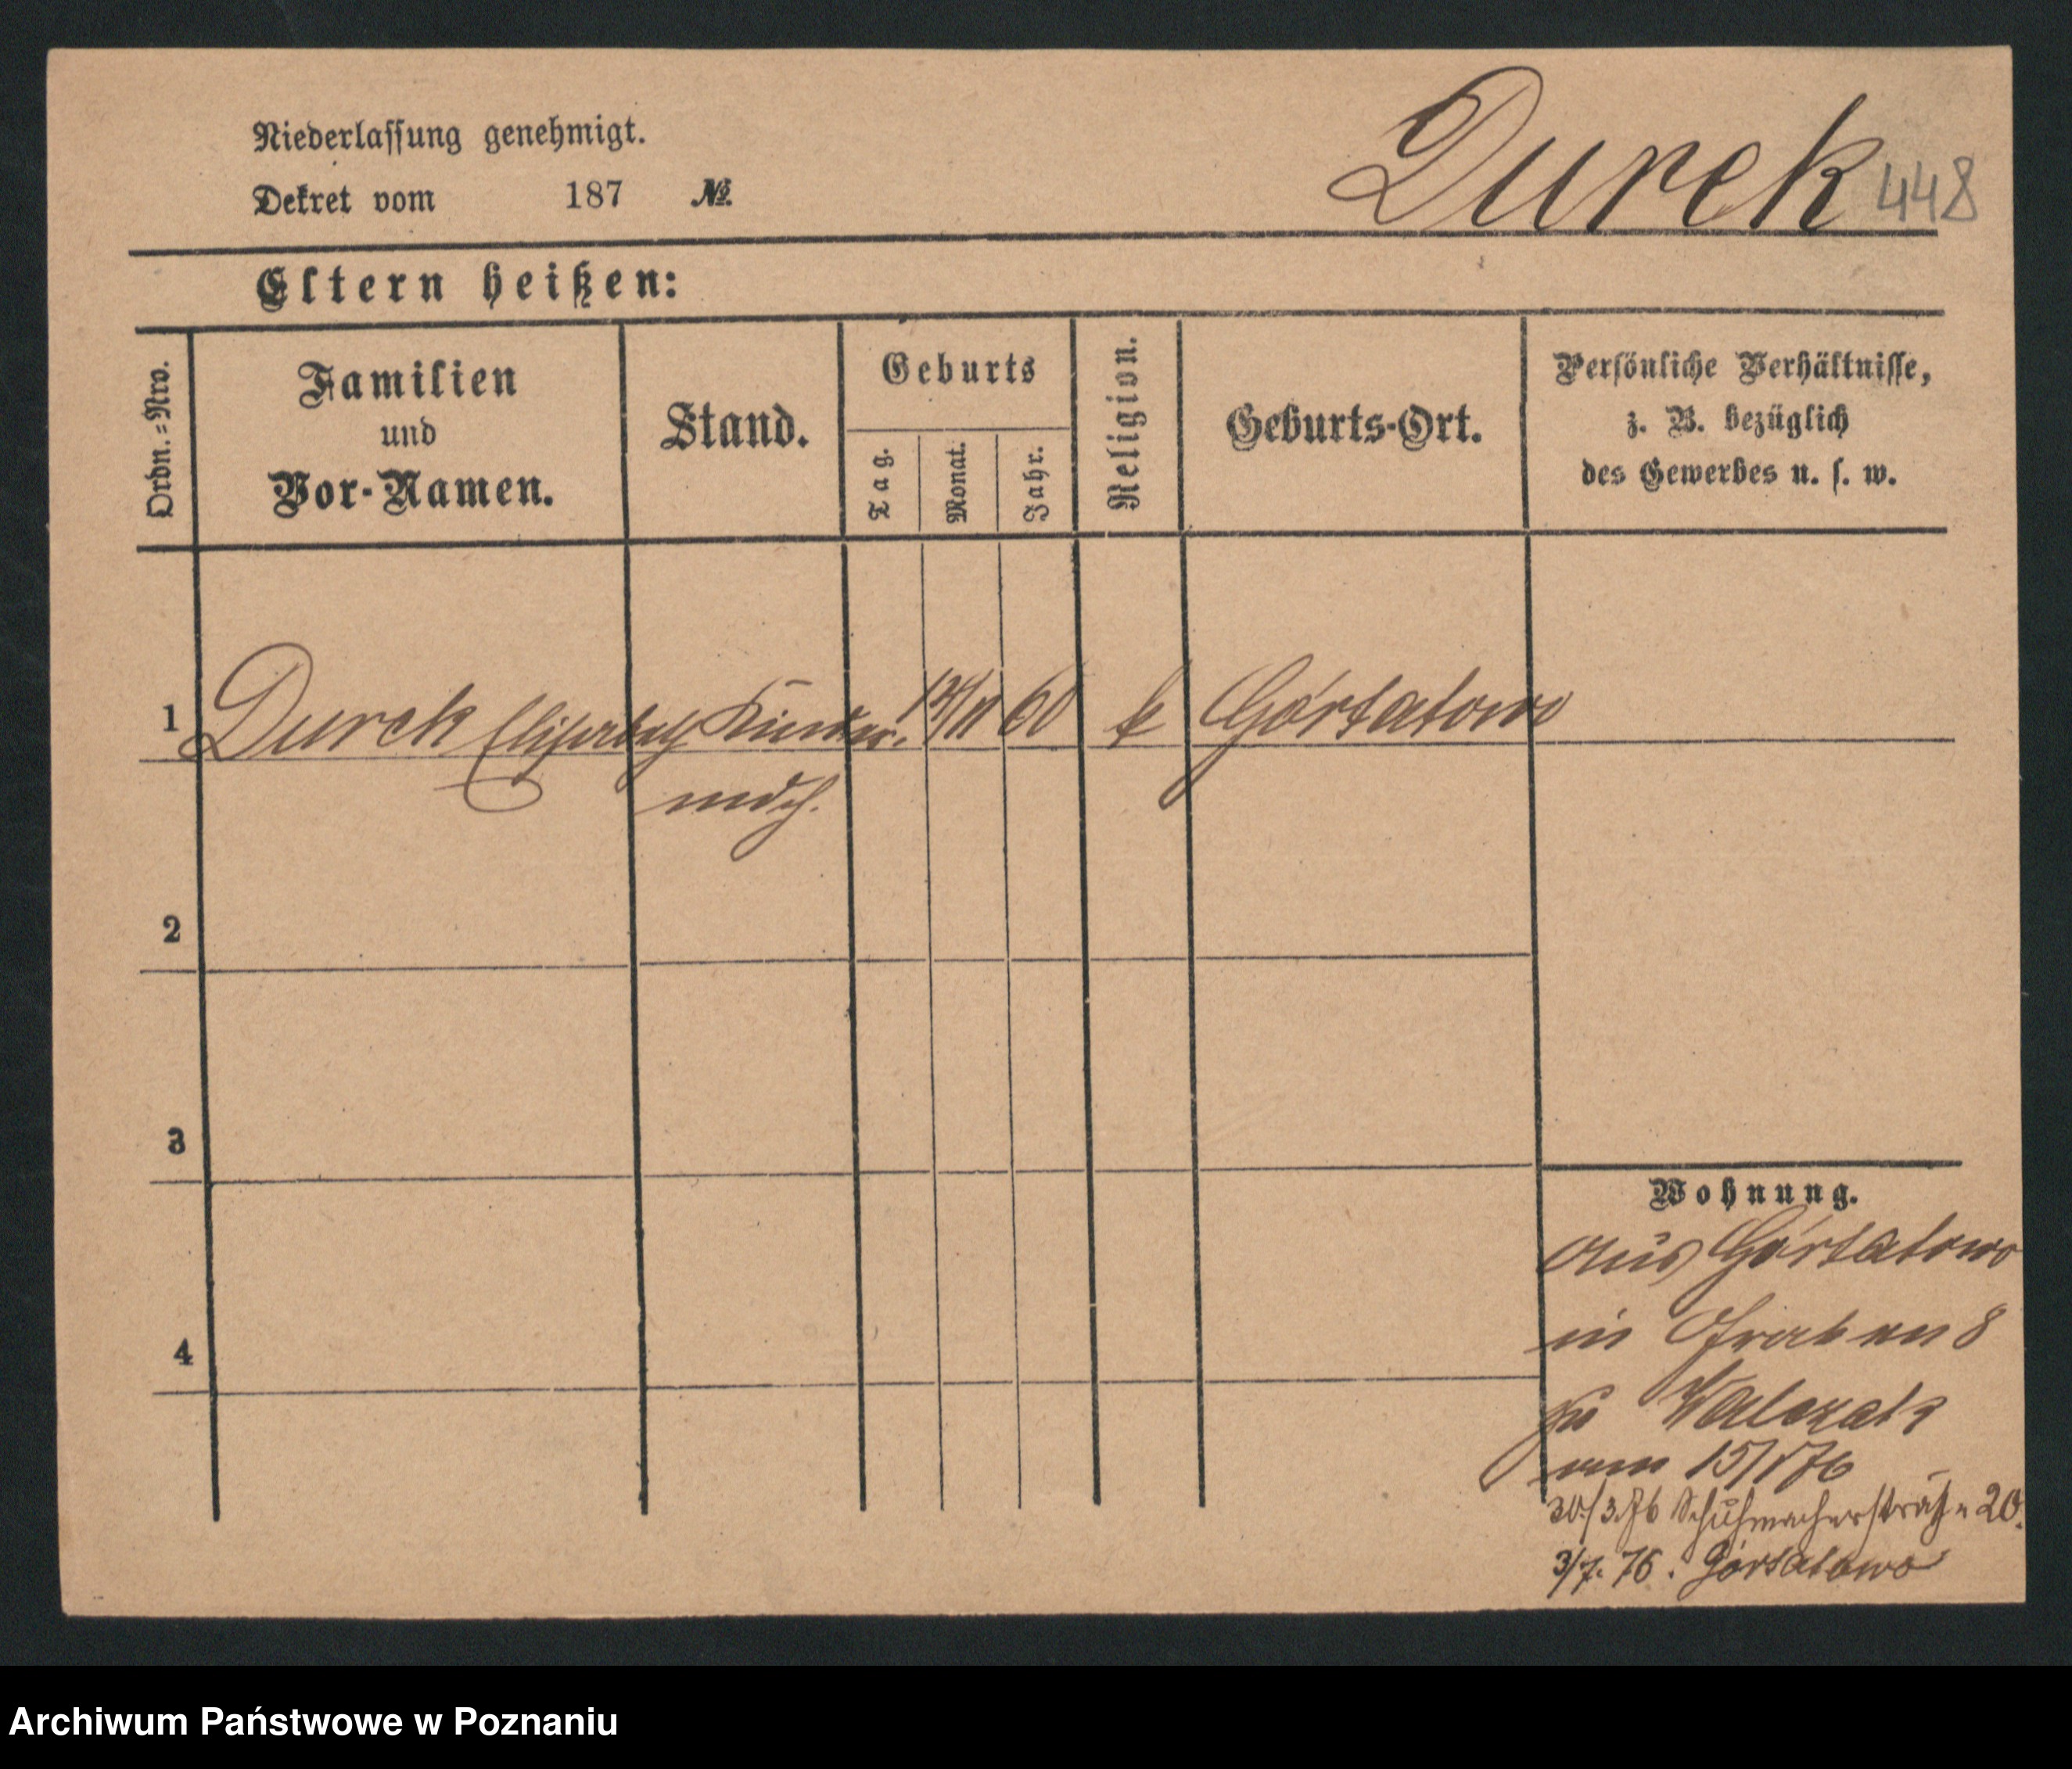 Niederlassung genehmigt.
Durek 448
Dekret vom 187 №.
Eltern heißen:
Ordn.=Nro.
Familien
und
Vor-Namen.
Stand.
Geburts
Tag.
Monat.
Jahr.
Religion.
Geburts-Ort.
Persönliche Verhältnisse,
z. B. bezüglich
des Gewerbes u. s. w.
1 Durek Elisabeth Kinder- 60 k Górtatowo
mdch.
2
3
4
Wohnung.
aus Gortatowo
in Graben 8
zu
vom 15/1 76
30/3.76 Schuhmacherstraße 20.
3/7. 76. Gortatowo
Archiwum Państwowe w Poznaniu